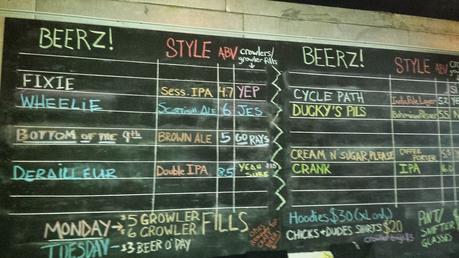 BEERZ!
STYLE ABV crowlers/
growler fills
FIXIE Sess. IPA 4.7 YEP
WHEELIE Scottish Ale 6 JES
BOTTOM OF THE 9th BROWN ALE 5 GO RAYS
DERAILLEUR Double IPA 8.5 YEAH
SURE
MONDAY → $5 GROWLER FILLS
$6 CROWLER
TUESDAY → $3 BEER O' DAY
BEERZ!
STYLE ABV
CYCLE PATH India Pale Lager 5.2
DUCKY'S PILS Bohemian Pilsner 5.5
CREAM N SUGAR, PLEASE COFFEE
PORTER
CRANK IPA
Hoodies $30 (XL only)
CHICKS + DUDES SHIRTS $20
PINT/
SNIFTER
GLASSES